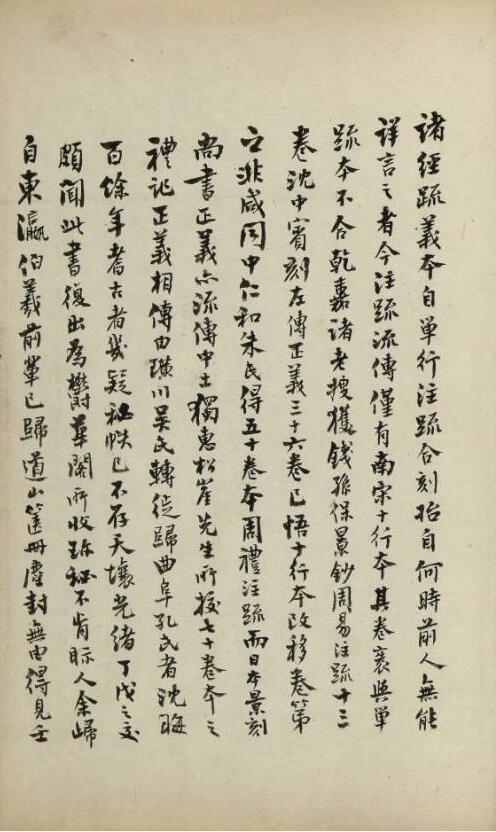 諸經疏義本自単行注疏合刻始自何時前人無能
詳言之者今注疏流傳僅有南宋十行本其卷袠與單
疏本不合乾嘉諸老搜獲錢孫保景鈔周易注疏十三
卷沈中賓刻左傳正義三十六卷已悟十行本改移卷第
之非咸同中仁和朱氏得五十卷本周禮注疏而日本景刻
尚書正義亦流傳中土獨惠松崖先生所校七十卷本之
禮記正義相傳由璜川吳氏轉徙歸曲阜孔氏者沈晦
百餘年耆古者幾疑祕帙已不存天壤光緒丁戊之交
頗聞此書復出為欝華閣所收珎祕不肯眎人余歸
自東瀛伯羲前輩已歸道山篋冊塵封無由得見壬